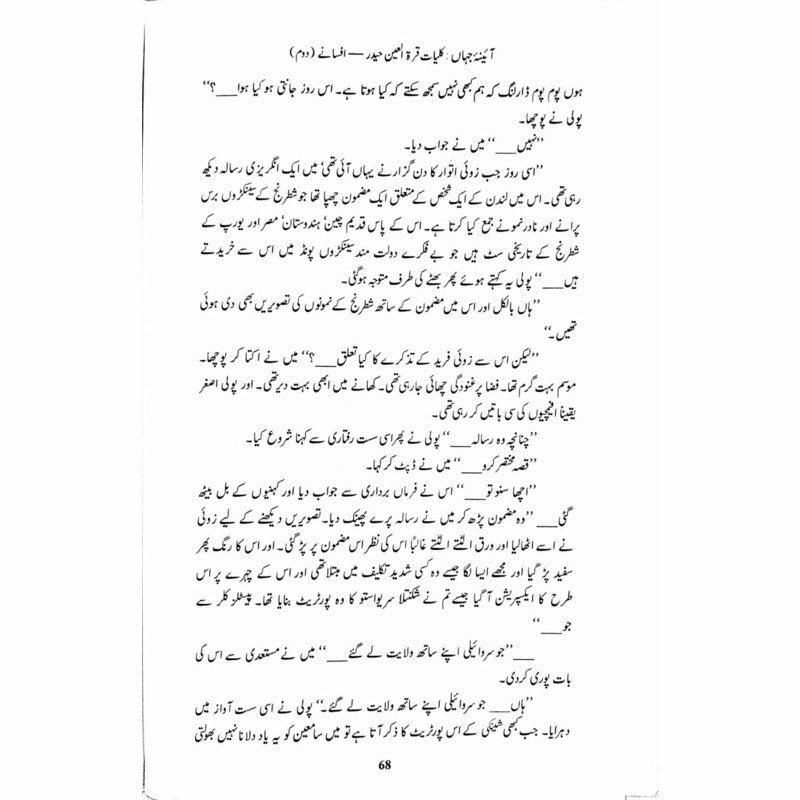 آئینۂ جہاں : کلیات قرۃ العین حیدر — افسانے (دوم)
ہوں پوم پوم ڈارلنگ کہ ہم کبھی نہیں سمجھ سکتے کہ کیا ہوتا ہے۔ اس روز جانتی ہو کیا ہوا___؟‘‘
پولی نے پوچھا۔
’’نہیں___‘‘ میں نے جواب دیا۔
’’اسی روز جب زوئی اتوار کا دن گزارنے یہاں آئی تھی‘ میں ایک انگریزی رسالہ دیکھ
رہی تھی۔ اس میں لندن کے ایک شخص کے متعلق ایک مضمون چھپا تھا جو شطرنج کے سینکڑوں برس
پرانے اور نادر نمونے جمع کیا کرتا ہے۔ اس کے پاس قدیم چین‘ ہندوستان‘ مصر اور یورپ کے
شطرنج کے تاریخی سٹ ہیں جو بے فکرے دولت مند سینکڑوں پونڈ میں اس سے خریدتے
ہیں___‘‘ پولی یہ کہتے ہوئے پھر بھٹے کی طرف متوجہ ہو گئی۔
’’ہاں بالکل اور اس میں مضمون کے ساتھ شطرنج کے نمونوں کی تصویریں بھی دی ہوئی
تھیں۔‘‘
’’لیکن اس سے زوئی فرید کے تذکرے کا کیا تعلق___؟‘‘ میں نے اکتا کر پوچھا۔
موسم بہت گرم تھا۔ فضا پر غنودگی چھائی جا رہی تھی۔ کھانے میں ابھی بہت دیر تھی۔ اور پولی اصغر
یقیناً افیمچیوں کی سی باتیں کر رہی تھی۔
’’چنانچہ وہ رسالہ___‘‘ پولی نے پھر اسی سست رفتاری سے کہنا شروع کیا۔
’’قصہ مختصر کرو___‘‘ میں نے ڈپٹ کر کہا۔
’’اچھا سنو تو___‘‘ اس نے فرماں برداری سے جواب دیا اور کہنیوں کے بل بیٹھ
گئی___ ’’وہ مضمون پڑھ کر میں نے رسالہ پرے پھینک دیا۔ تصویریں دیکھنے کے لیے زوئی
نے اسے اٹھا لیا اور ورق الٹتے الٹتے غالباً اس کی نظر اس مضمون پر پڑ گئی۔ اور اس کا رنگ پھر
سفید پڑ گیا اور مجھے ایسا لگا جیسے وہ کسی شدید تکلیف میں مبتلا تھی اور اس کے چہرے پر اس
طرح کا ایکسپریشن آ گیا جیسے تم نے شکنتلا سریواستو کا وہ پورٹریٹ بنایا تھا۔ پیسٹلز کلر سے
جو___‘‘
___’’جو سروائیلی اپنے ساتھ ولایت لے گئے___‘‘ میں نے مستعدی سے اس کی
بات پوری کر دی۔
’’ہاں___ جو سروائیلی اپنے ساتھ ولایت لے گئے۔‘‘ پولی نے اسی سست آواز میں
دہرایا۔ جب کبھی شینکی کے اس پورٹریٹ کا ذکر آتا ہے تو میں سامعین کو یہ یاد دلانا نہیں بھولتی
68